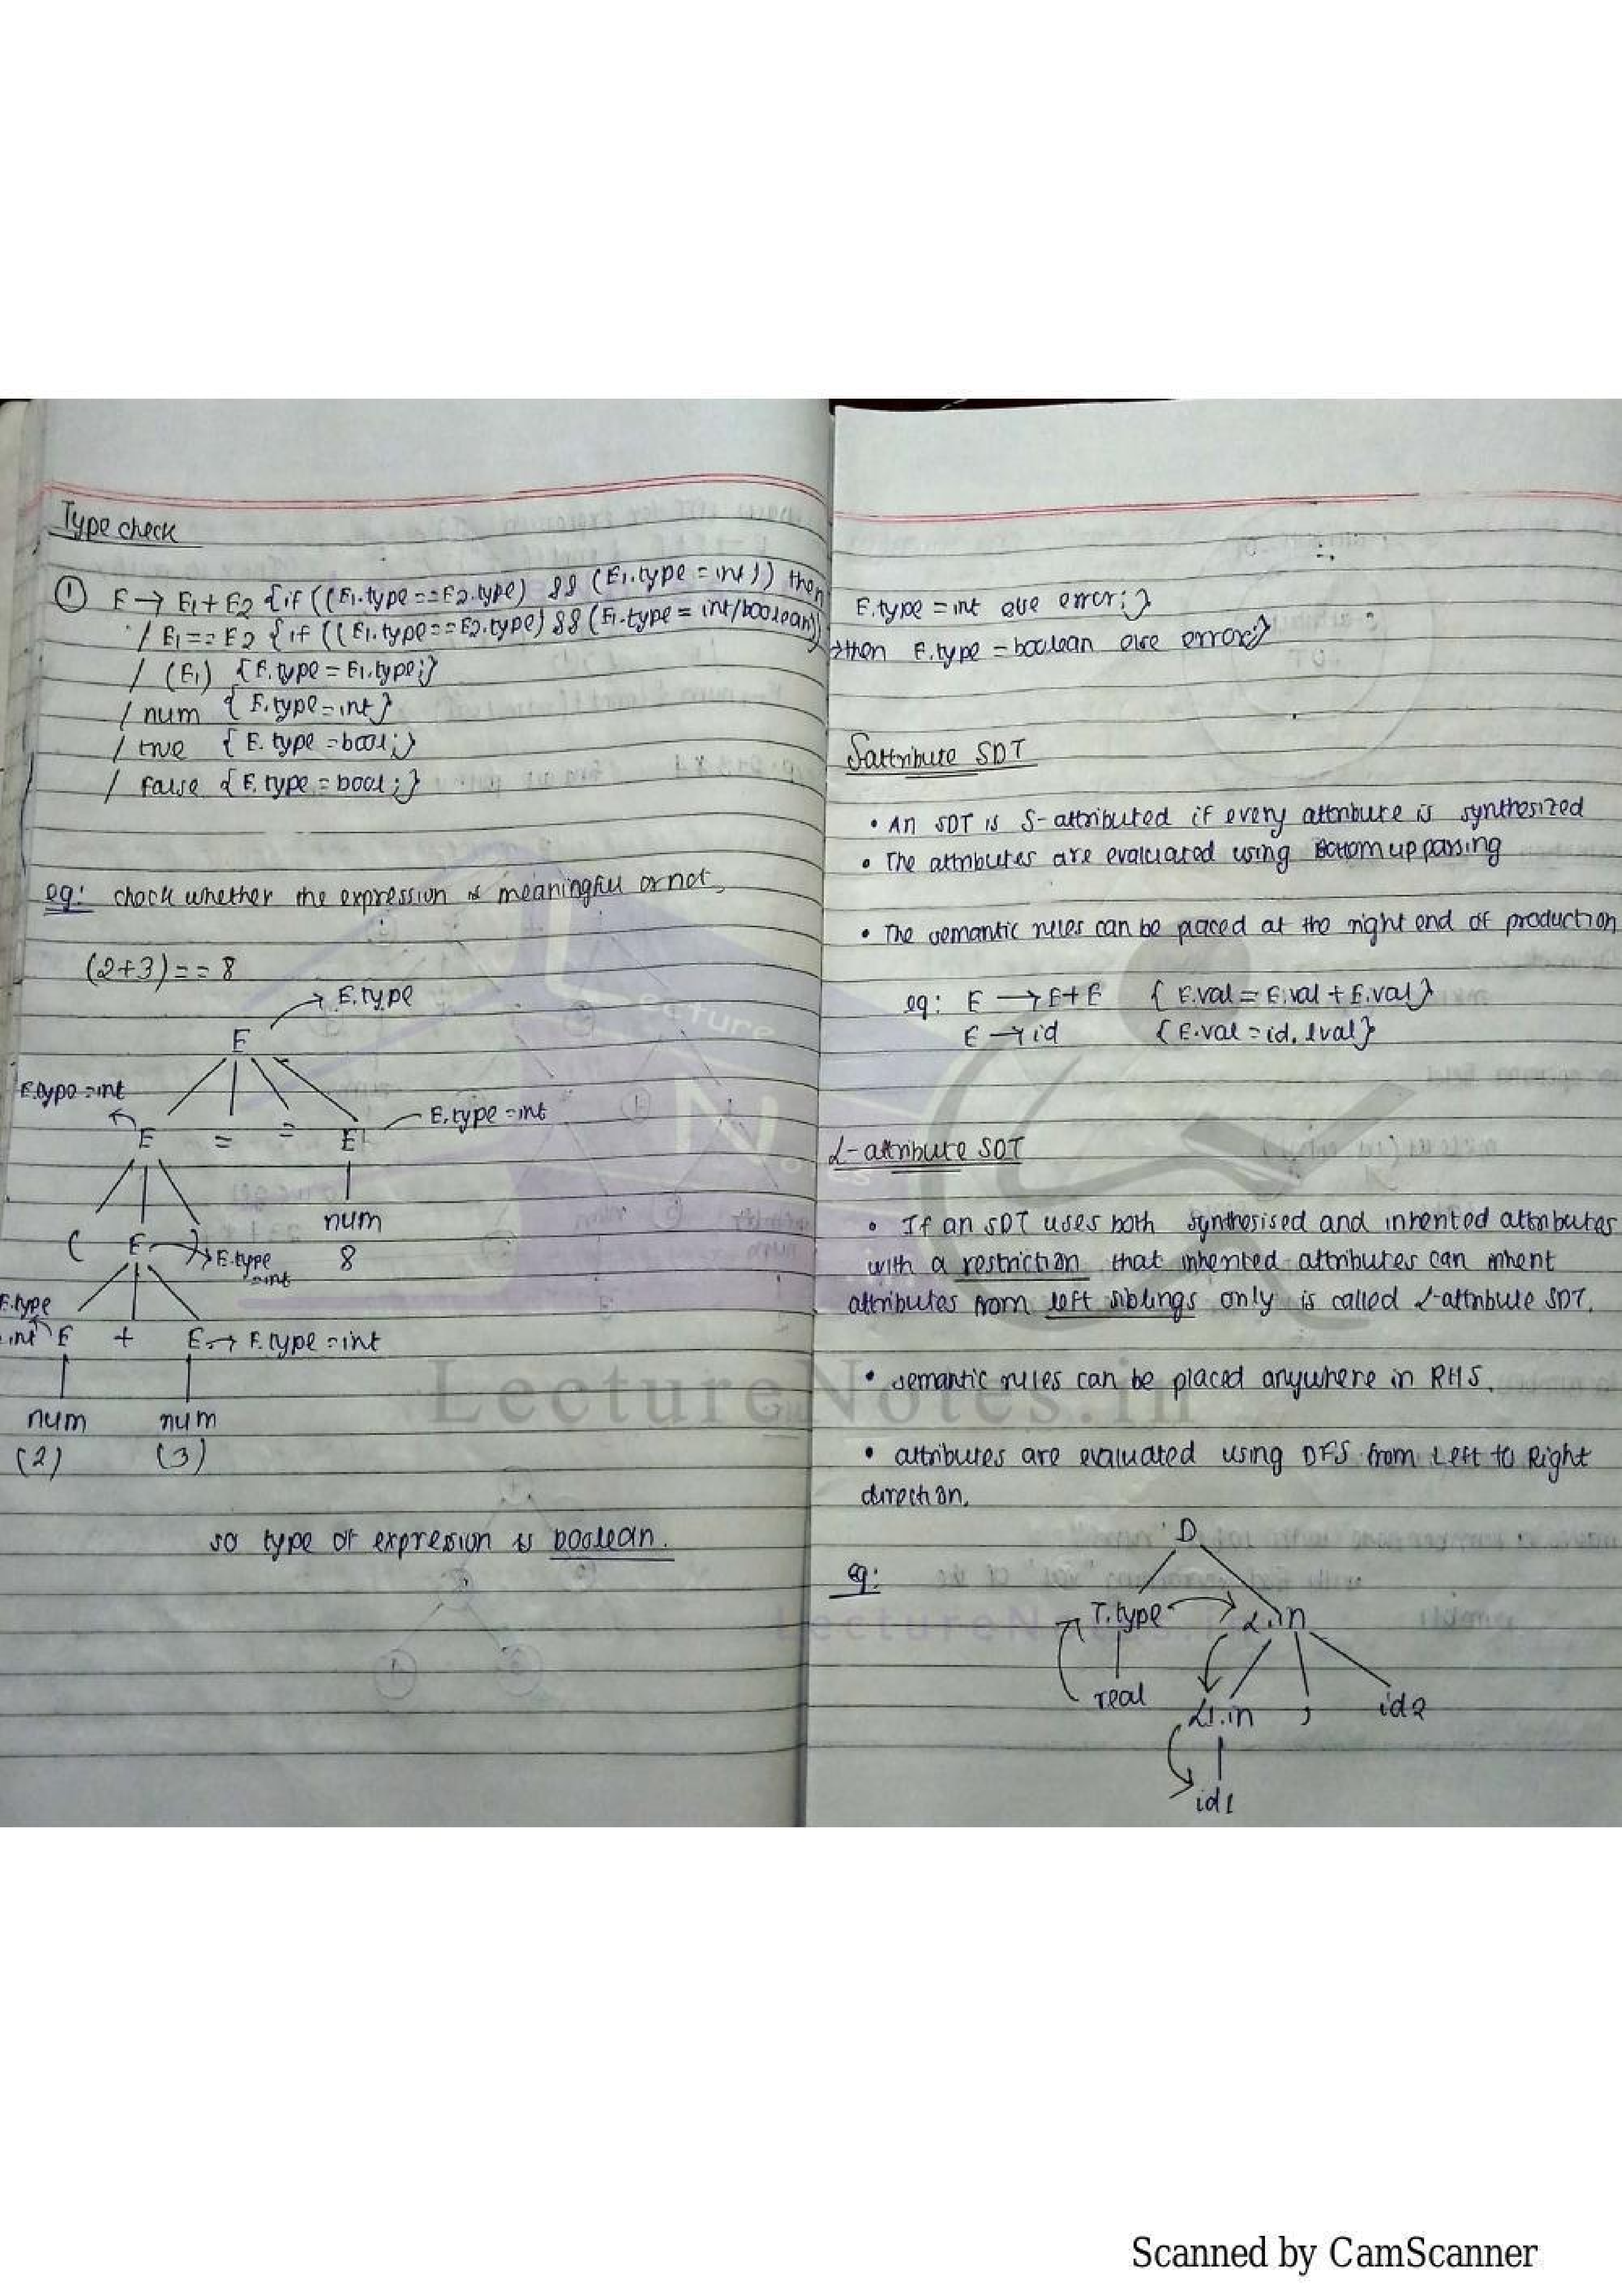 Type check
① E → E1 + E2 {if ((E1.type == E2.type) && (E1.type = int)) then
/ E1 == E2 {if ((E1.type == E2.type) && (E1.type = int/boolean))
/ (E1) {E.type = E1.type;}
/ num {E.type = int}
/ true {E.type = bool;}
/ False {E.type = bool;}
eg: check whether the expression is meaningful or not,
(2+3) = = 8
E → E.type
E.type = int
E = = E E.type = int
( E ) E.type = int
num
8
E.type int E + E → E.type = int
num num
(2) (3)
so type of expression is boolean.
E.type = int else error;}
→ then E.type = boolean else error;}
S attribute SDT
• An SDT is S-attributed if every attribute is synthesized
• The attributes are evaluated using Bottom up parsing
• The semantic rules can be placed at the right end of production
eg: E → E+E {E.val = E.val + E.val}
E → id {E.val = id.lval}
L-attribute SDT
• If an SDT uses both synthesised and inherited attributes
with a restriction that inherited attributes can inherit
attributes from left siblings only is called L-attribute SDT.
• semantic rules can be placed anywhere in RHS.
• attributes are evaluated using DFS from Left to Right
direction.
eg:
D
T.type L.in
real L1.in , id2
id1
Lecture Notes .in
LectureNotes.in
LectureNotes.in
Scanned by CamScanner